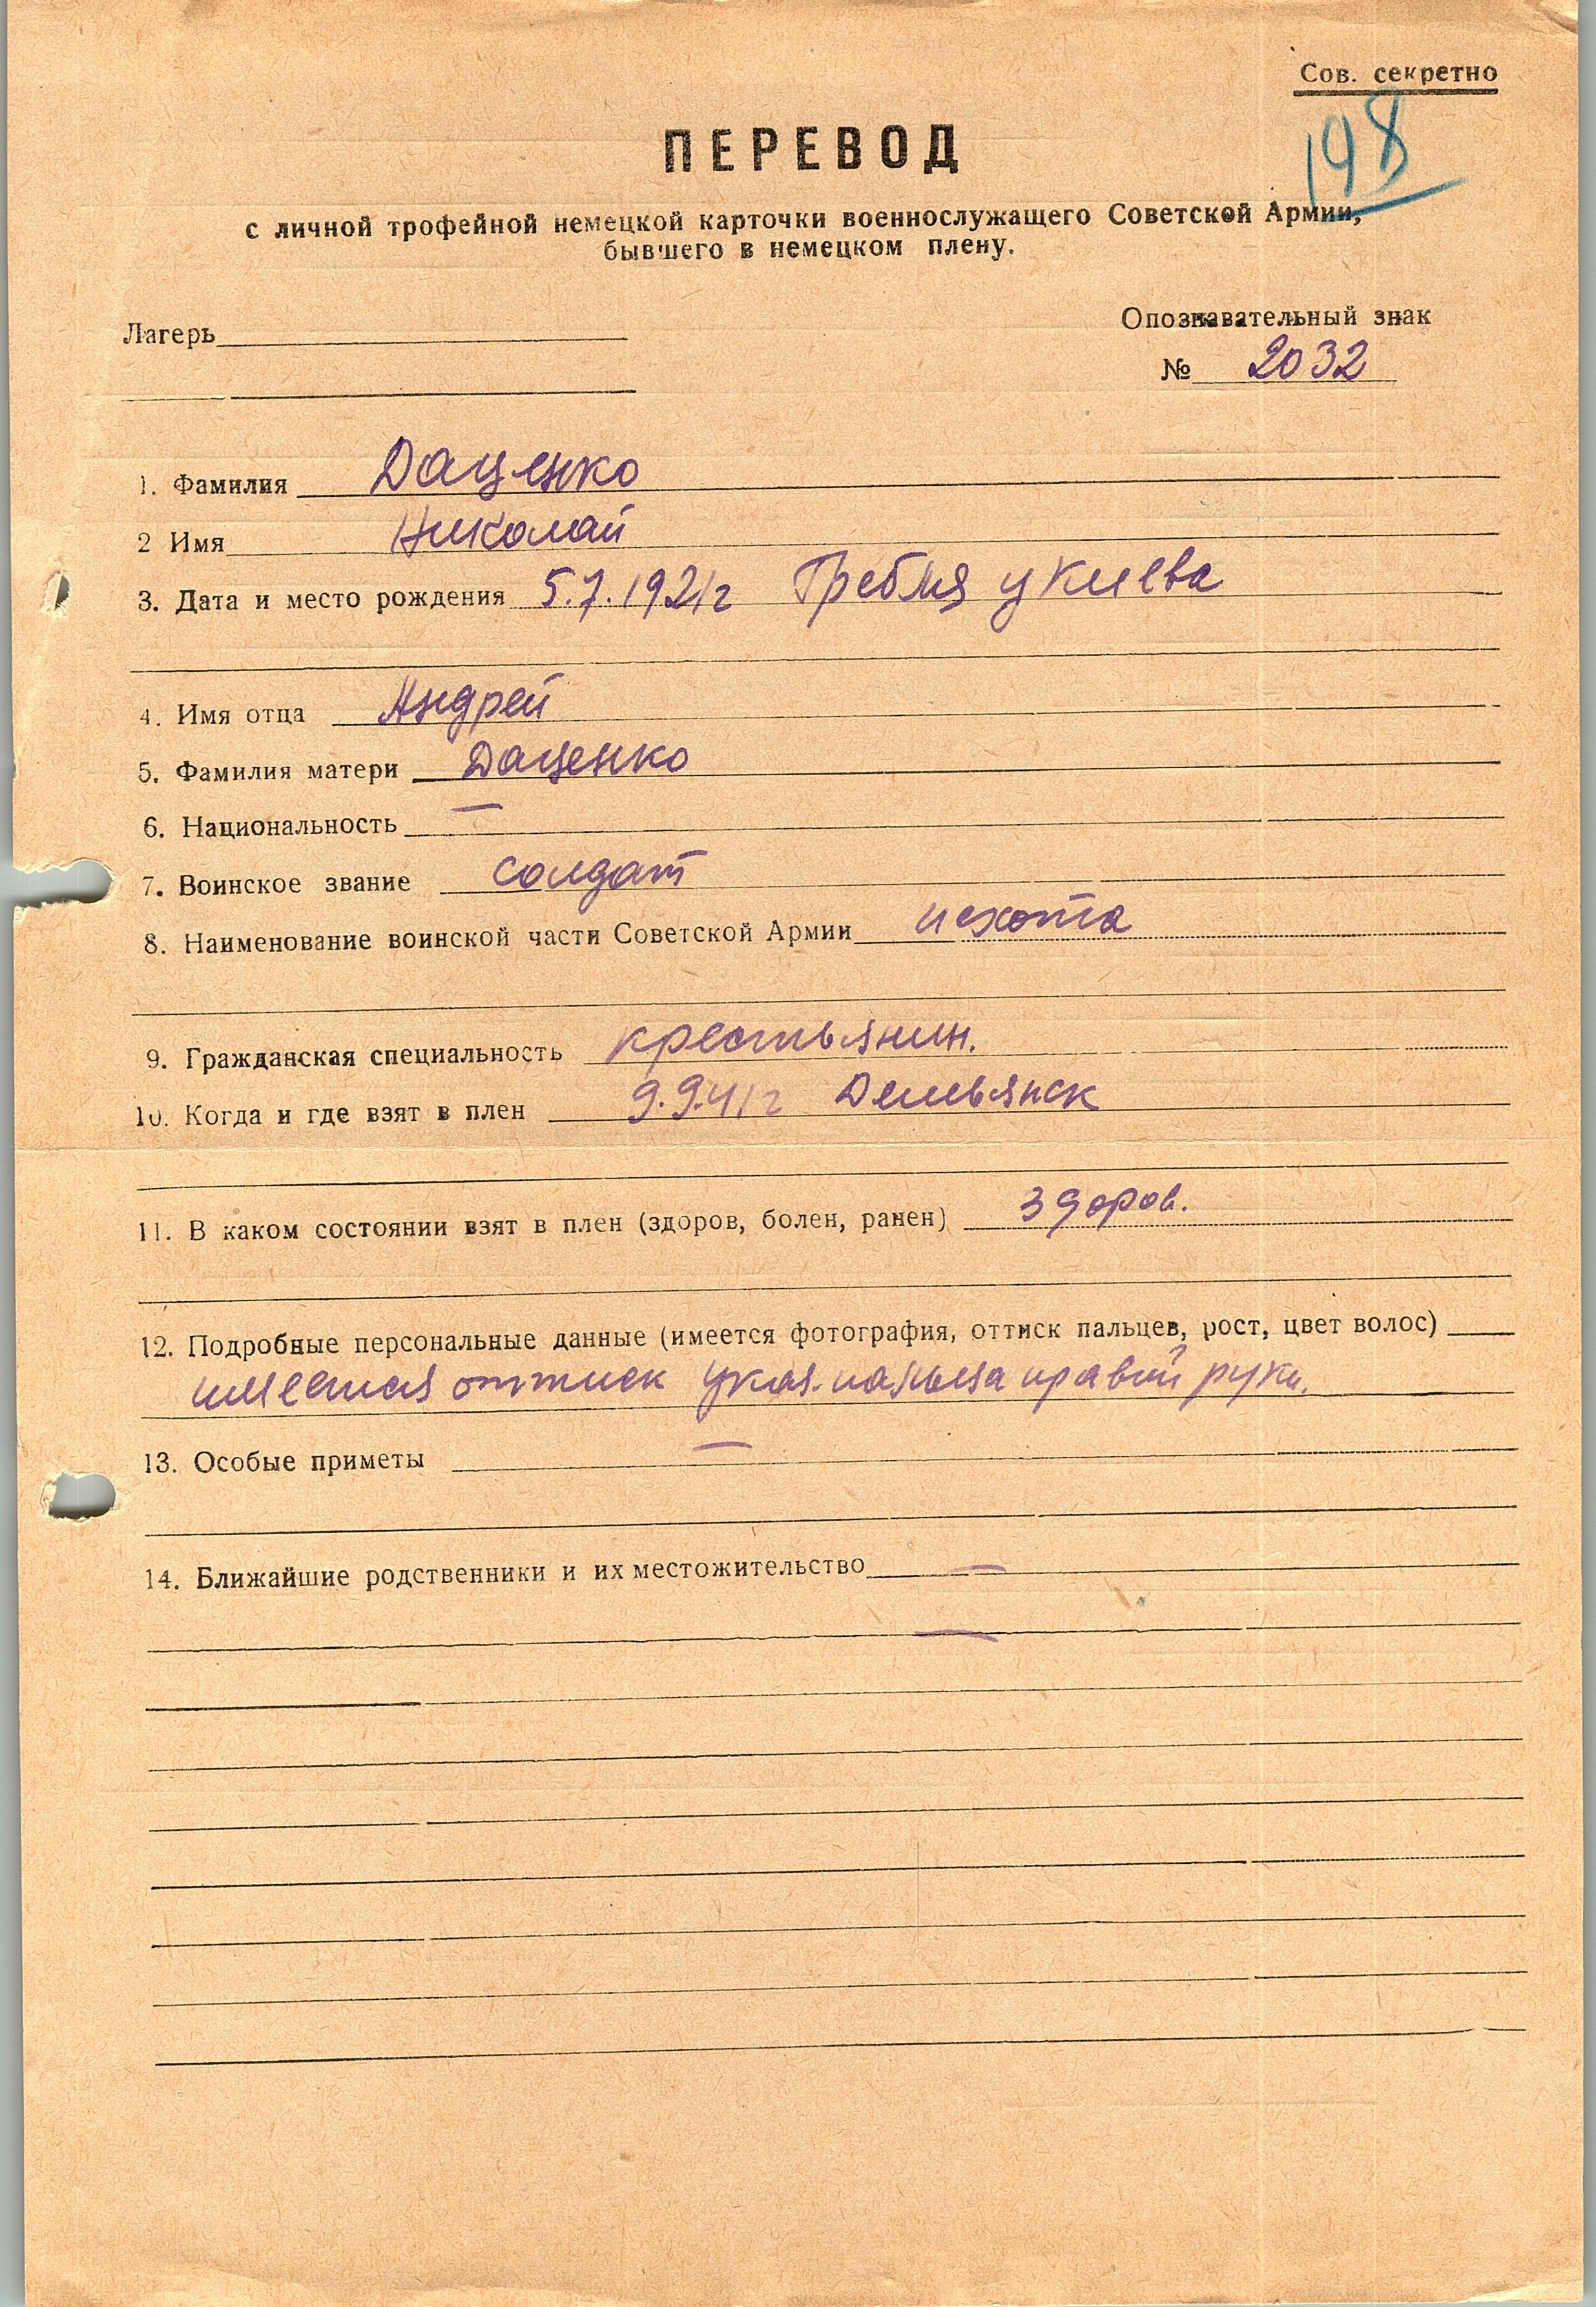 Сов. секретно
198
ПЕРЕВОД
с личной трофейной немецкой карточки военнослужащего Советской Армии,
бывшего в немецком плену.
Лагерь
Опознавательный знак
№ 2032
1. Фамилия Даценко
2 Имя Николай
3. Дата и место рождения 5.7.1921г Гребля у Киева
4. Имя отца Андрей
5. Фамилия матери Даценко
6. Национальность —
7. Воинское звание солдат
8. Наименование воинской части Советской Армии пехота
9. Гражданская специальность крестьянин.
10. Когда и где взят в плен 9.9.41г Демьянск
11. В каком состоянии взят в плен (здоров, болен, ранен) здоров.
12. Подробные персональные данные (имеется фотография, оттиск пальцев, рост, цвет волос)
имеется оттиск указ. пальца правой руки.
13. Особые приметы —
14. Ближайшие родственники и их местожительство —
—